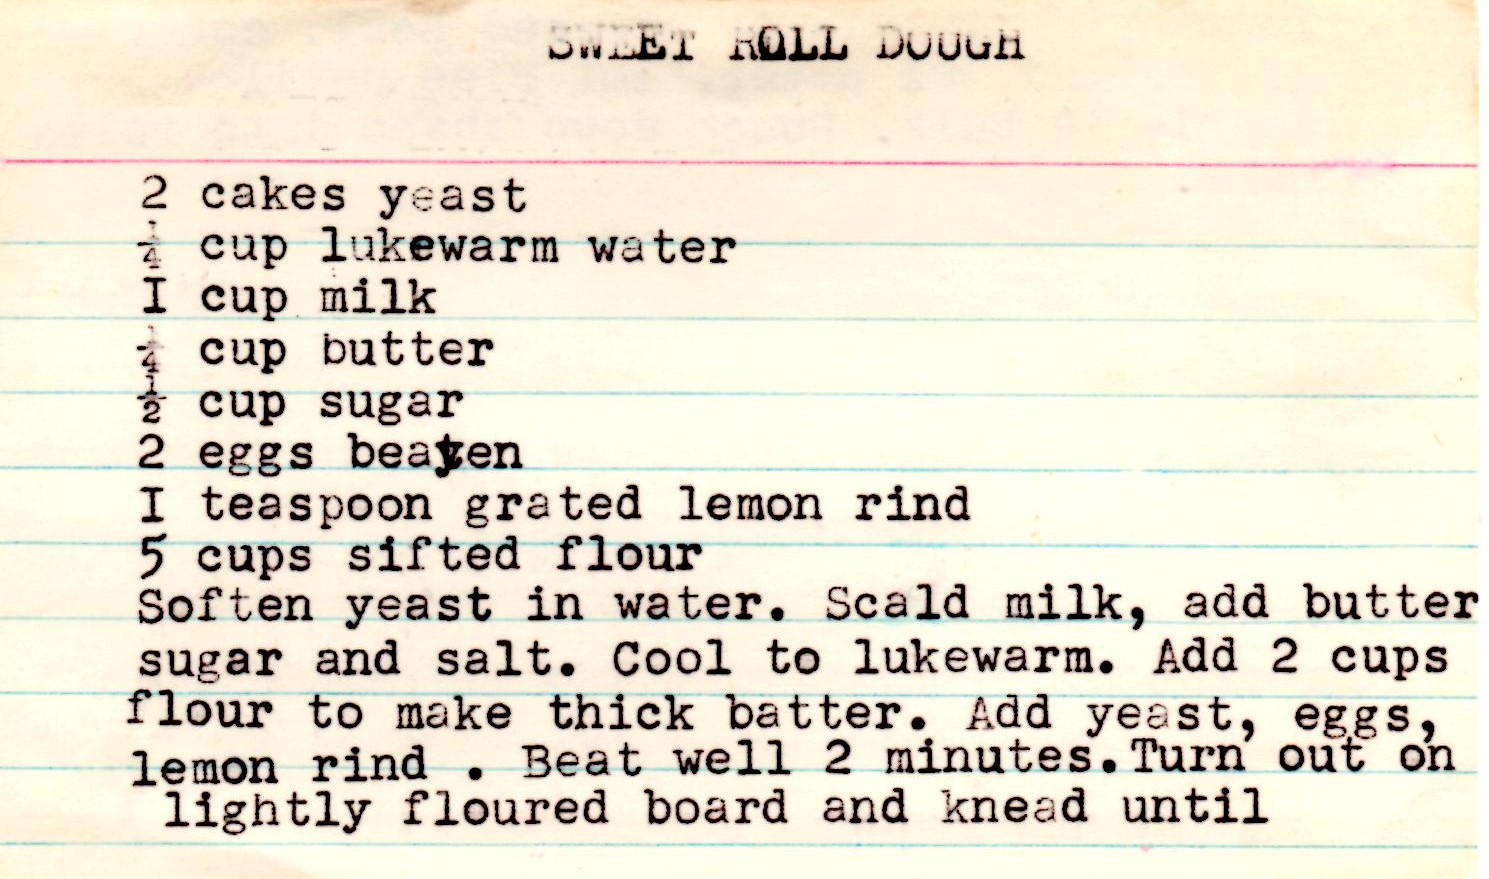 SWEET ROLL DOUGH
2 cakes yeast
¼ cup lukewarm water
I cup milk
¼ cup butter
½ cup sugar
2 eggs beaten
I teaspoon grated lemon rind
5 cups sifted flour
Soften yeast in water. Scald milk, add butter
sugar and salt. Cool to lukewarm. Add 2 cups
flour to make thick batter. Add yeast, eggs,
lemon rind . Beat well 2 minutes.Turn out on
lightly floured board and knead until